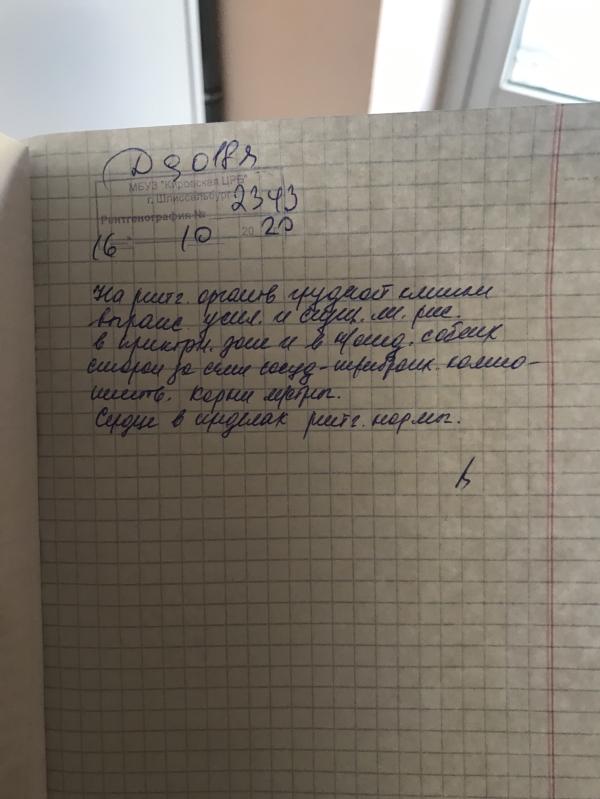 Д 3 018 я
МБУЗ "Кировская ЦРБ"
г. Шлиссельбург
Рентгенография № 2343
16 10 2020
На рентг. органов грудной клетки
выраж. усил. и сгущ. л. рис.
в прикорн. зоне и в с обеих
сторон за счет сосуд-
Корни
Сердце в пределах рентг. нормы.